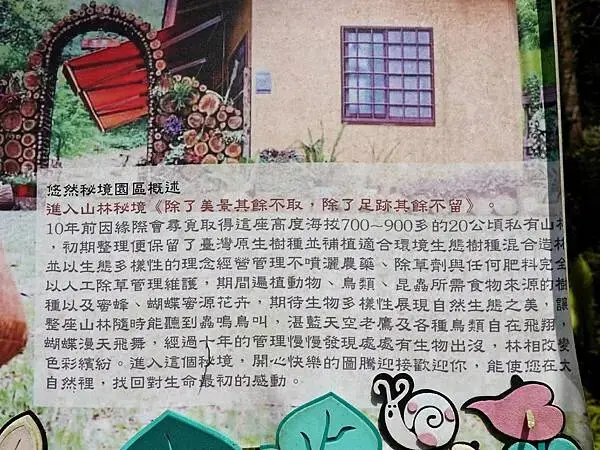 悠然秘境園區概述
進入山林秘境《除了美景其餘不取，除了足跡其餘不留》。
10年前因緣際會尋覓取得這座高度海拔700~900多的20公頃私有山林
，初期整理便保留了臺灣原生樹種並補植適合環境生態樹種混合造林
並以生態多樣性的理念經營管理不噴灑農藥、除草劑與任何肥料完全
以人工除草管理維護，期間遍植動物、鳥類、昆蟲所需食物來源的樹
種以及蜜蜂、蝴蝶蜜源花卉，期待生物多樣性展現自然生態之美，讓
整座山林隨時能聽到蟲鳴鳥叫，湛藍天空老鷹及各種鳥類自在飛翔，
蝴蝶漫天飛舞，經過十年的管理慢慢發現處處有生物出沒，林相改變
色彩繽紛。進入這個秘境，開心快樂的圖騰迎接歡迎你，能使您在大
自然裡，找回對生命最初的感動。